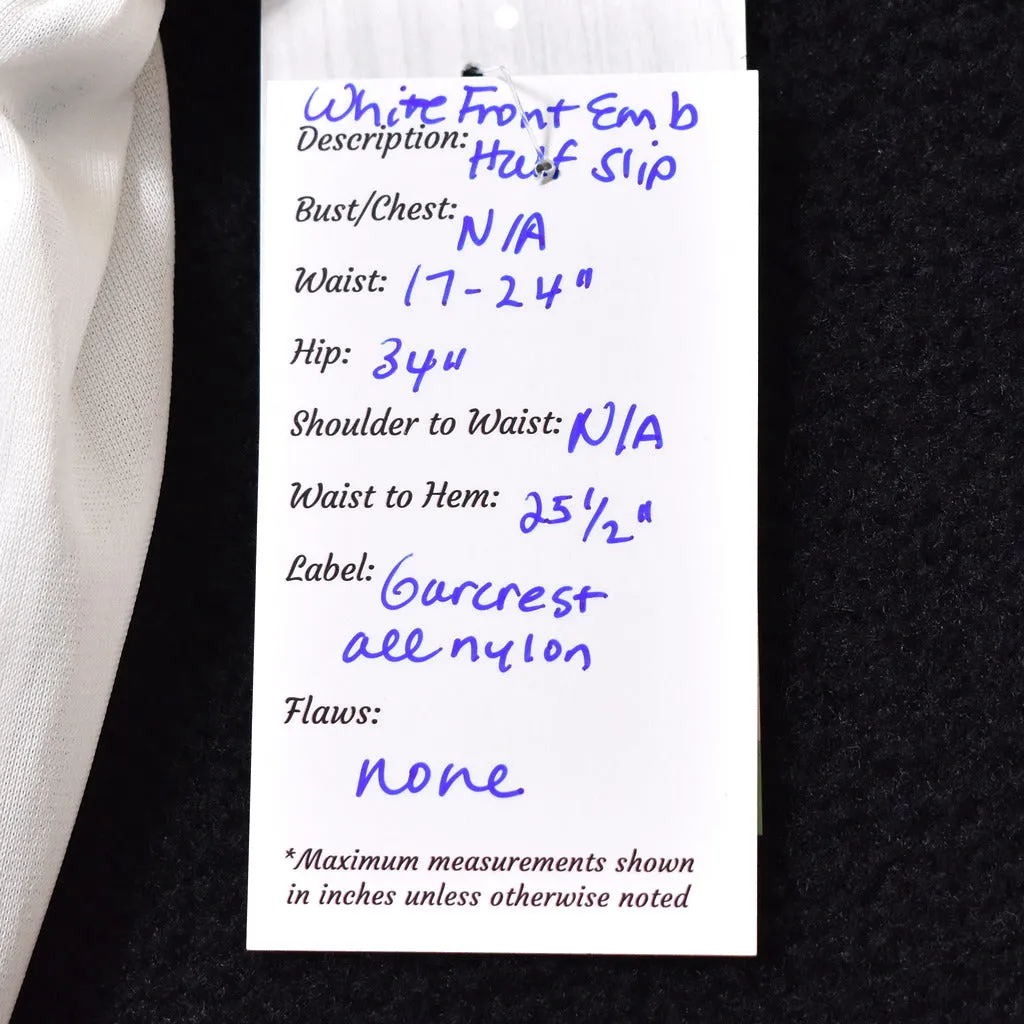 White Front Emb
Description: Half Slip
Bust/Chest: N/A
Waist: 17-24"
Hip: 34"
Shoulder to Waist: N/A
Waist to Hem: 25 1/2"
Label: Garcrest
all nylon
Flaws:
none
*Maximum measurements shown
in inches unless otherwise noted